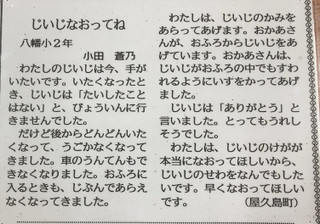 じいじなおってね
八幡小２年
小田　蒼乃
わたしのじいじは今、手が
いたいです。いたくなったと
き、じいじは「たいしたこと
はない」と、びょういんに行
きませんでした。
だけど後からどんどんいた
くなって、うごかなくなって
きました。車のうんてんもで
きなくなりました。おふろに
入るときも、じぶんであらえ
なくなってきました。
わたしは、じいじのかみを
あらってあげます。おかあさ
んが、おふろからじいじをあ
げています。おかあさんは、
じいじがおふろの中でもすわ
れるようにいすをかってあげ
ました。
じいじは「ありがとう」と
言いました。とってもうれし
そうでした。
わたしは、じいじのけがが
本当になおってほしいから、
じいじのせわをなんでもした
いです。早くなおってほしい
です。
（屋久島町）